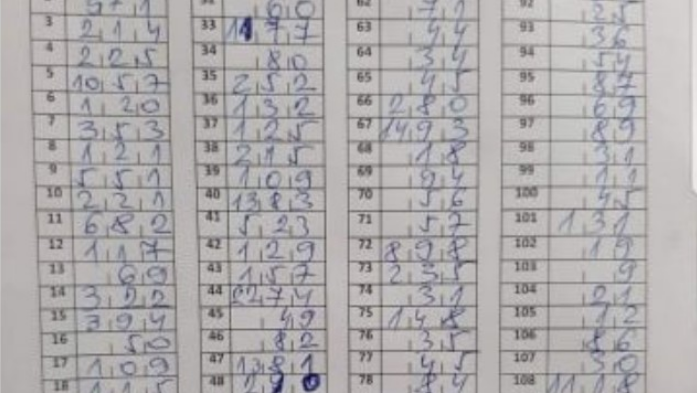 3 214 33 1177 63 44 93 36
4 225 34 80 64 34 94 54
5 1057 35 252 65 45 95 87
6 120 36 132 66 280 96 69
7 353 37 125 67 1493 97 89
8 121 38 215 68 18 98 31
9 551 39 109 69 94 99 11
10 221 40 1383 70 56 100 45
11 682 41 523 71 57 101 131
12 117 42 129 72 898 102 19
13 69 43 157 73 235 103 9
14 322 44 2274 74 31 104 21
15 394 45 49 75 148 105 12
16 50 46 82 76 35 106 86
17 109 47 1381 77 45 107 30
18 115 48 78 84 108 1118